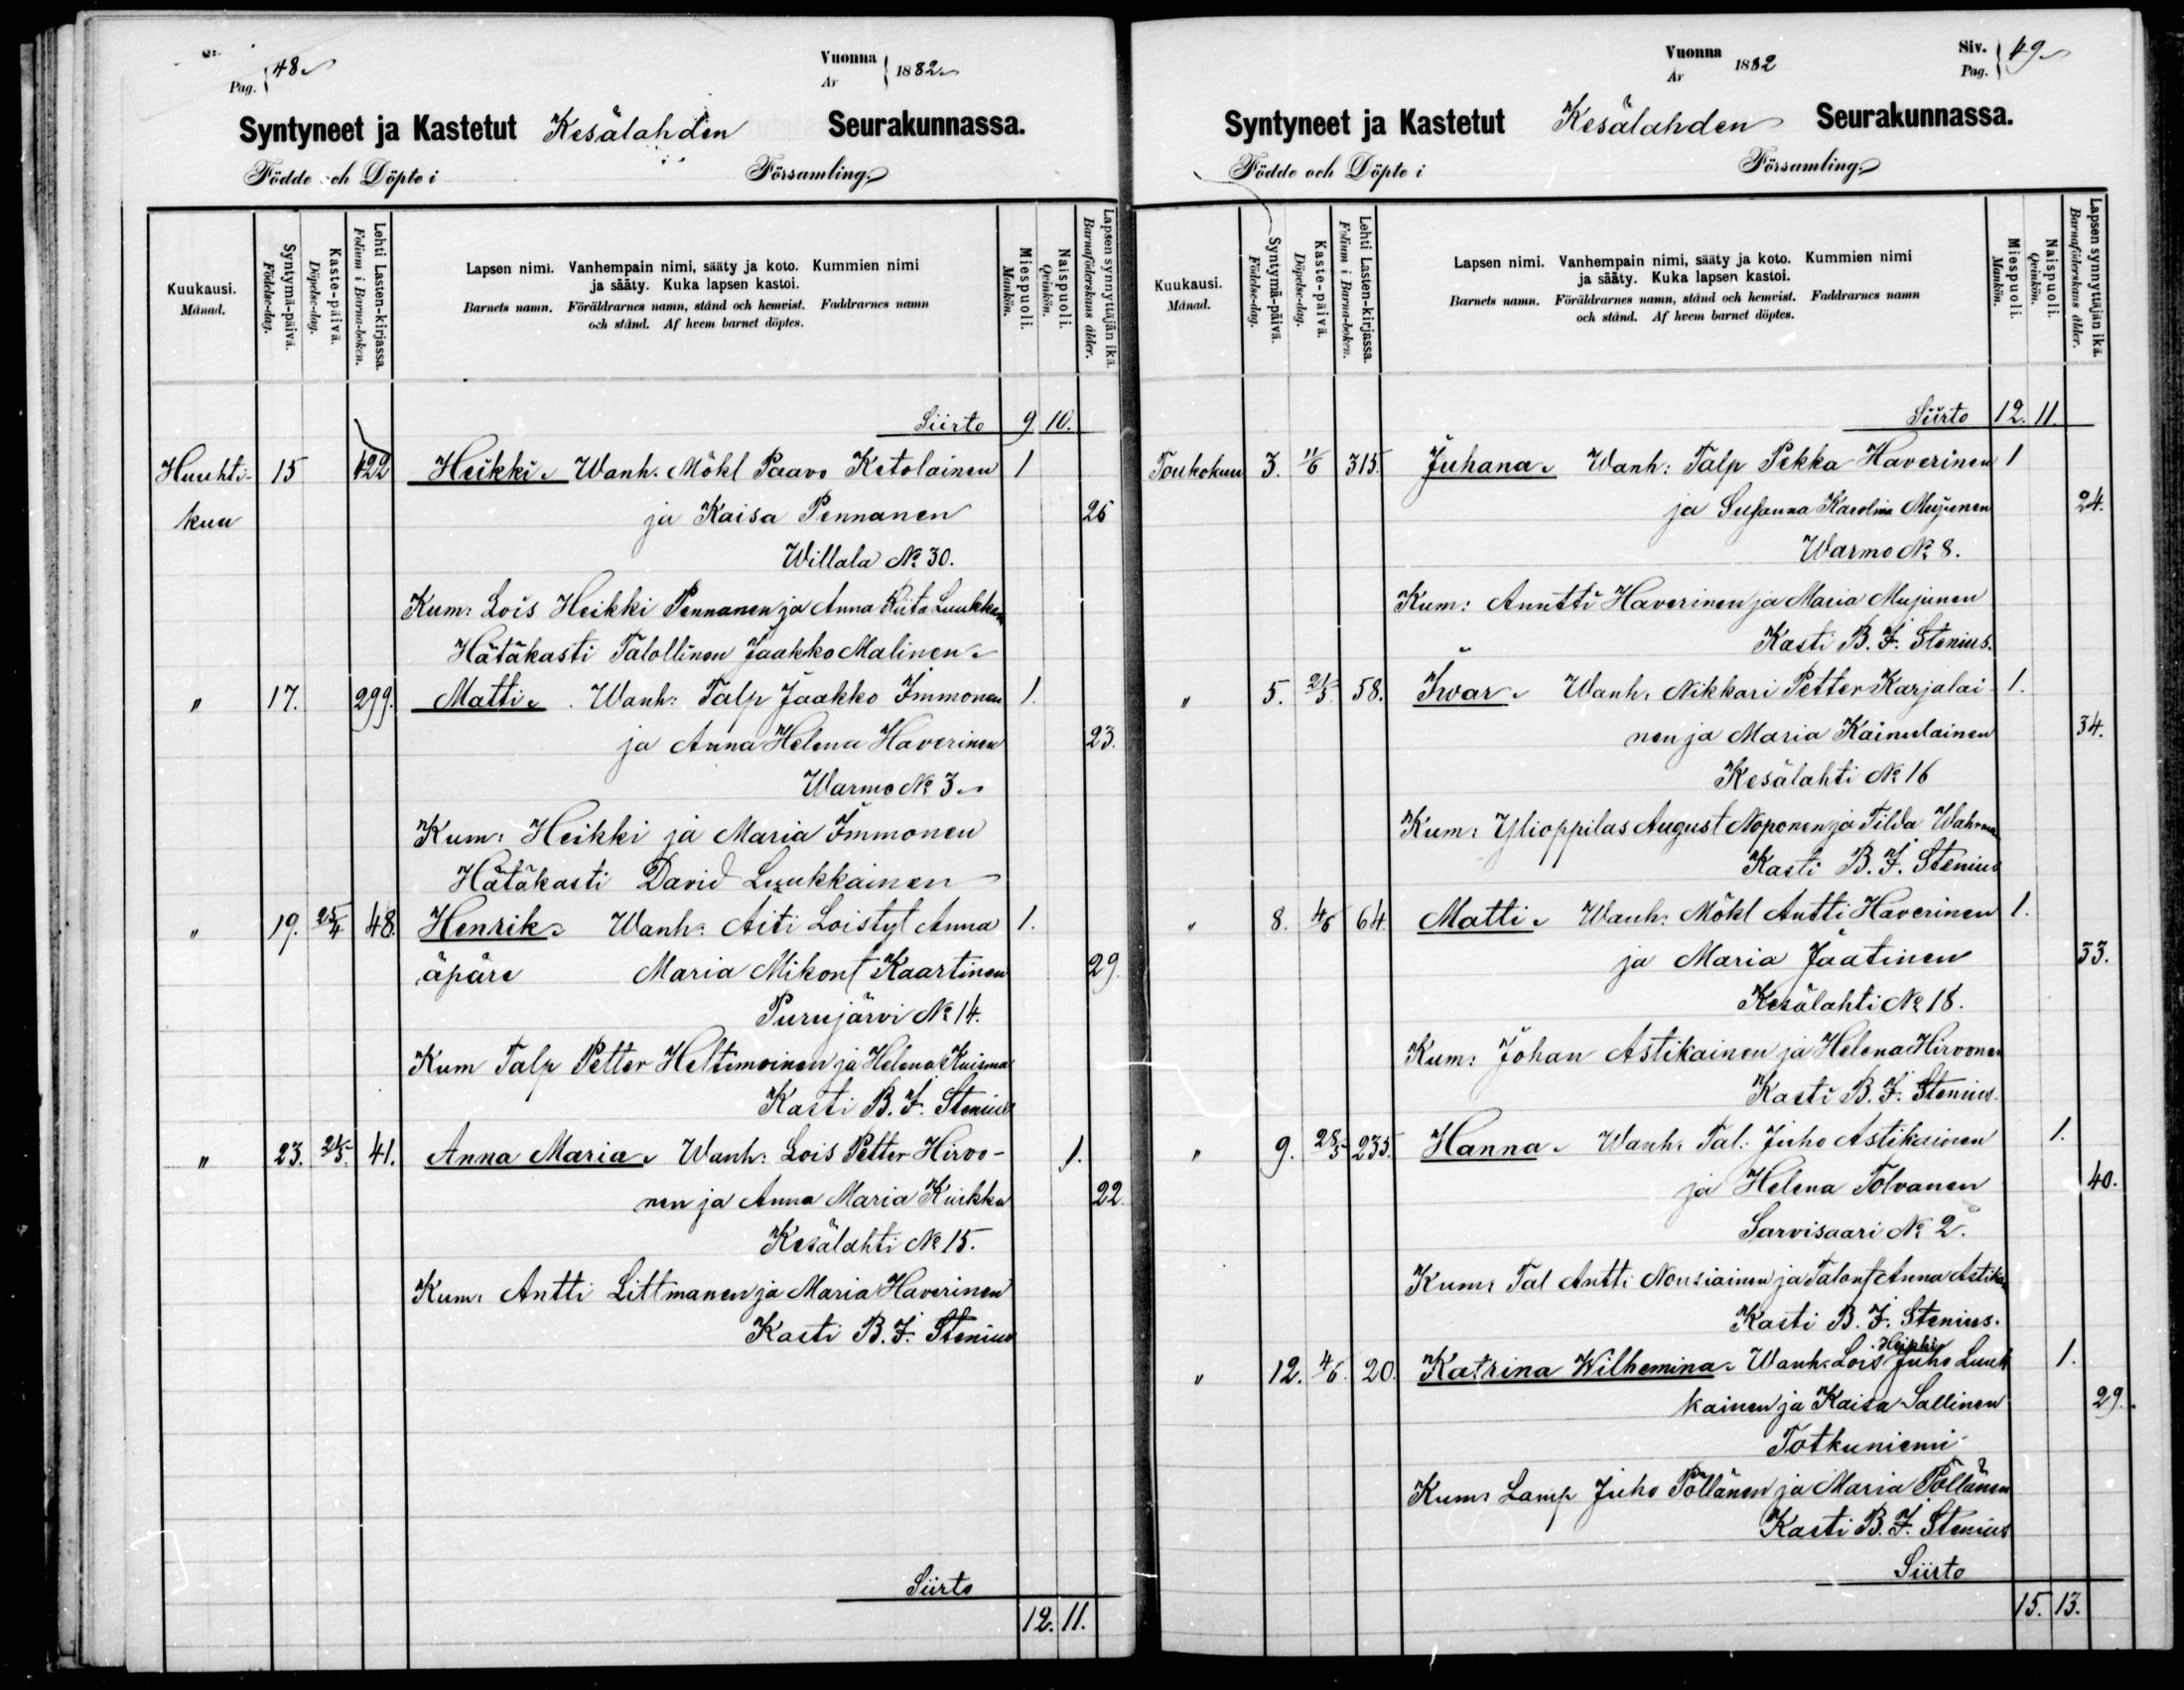 Pag. 48.
Vuonna År 1882.
Syntyneet ja Kastetut Kesälahden Seurakunnassa.
Födde och Döpte i Församling.
Kuukausi. Månad.
Syntymä-päivä. Födelse-dag.
Kaste-päivä. Döpelse-dag.
Lehti Lasten-kirjassa. Folium i Barna-boken.
Lapsen nimi. Vanhempain nimi, sääty ja koto. Kummien nimi
ja sääty. Kuka lapsen kastoi.
Barnets namn. Föräldrarnes namn, stånd och hemvist. Faddrarnes namn
och stånd. Af hvem barnet döptes.
Miespuoli. Mankön.
Naispuoli. Qvinkön.
Lapsen synnyttäjän ikä. Barnaföderskans ålder.
Siirto 9 10.
Huuhti- 15 122 Heikki. Wanh. Mökl Paavo Ketolainen 1
kuu ja Kaisa Pennanen 26
Willala No 30.
Kum: Lois Heikki Pennanen ja Anna Riita
Hätäkasti Talollinen Jaakko Malinen.
" 17. 299. Matti. Wanh: Talp Jaakko Immonen 1.
ja Anna Helena Haverinen 23.
Warmo No 3.
Kum: Heikki ja Maria Immonen
Hätäkasti David Luukkainen
" 19. 25/4 48. Henrik. Wanh: Äiti Loistyt Anna 1.
äpäre Maria Mikont Kaartinen 29.
Purujärvi No 14.
Kum Talp Petter Heltimoinen ja Helena Kuisma
Kasti B. F. Stenius
" 23. 41. Anna Maria. Wanh: Lois Petter Hirvo- 1.
nen ja Anna Maria Kiikku 22.
Kesälahti No 15.
Kum: Antti Littmanen ja Maria Haverinen
Kasti B. F. Stenius
Siirto
12. 11.
Vuonna År 1882
Siv. Pag. 49.
Syntyneet ja Kastetut Kesälahden Seurakunnassa.
Födde och Döpte i Församling.
Kuukausi. Månad.
Syntymä-päivä. Födelse-dag.
Kaste-päivä. Döpelse-dag.
Lehti Lasten-kirjassa. Folium i Barna-boken.
Lapsen nimi. Vanhempain nimi, sääty ja koto. Kummien nimi
ja sääty. Kuka lapsen kastoi.
Barnets namn. Föräldrarnes namn, stånd och hemvist. Faddrarnes namn
och stånd. Af hvem barnet döptes.
Miespuoli. Mankön.
Naispuoli. Qvinkön.
Lapsen synnyttäjän ikä. Barnaföderskans ålder.
Siirto 12. 11.
Toukokuu 3. 11/6 315. Juhana. Wanh: Talp Pekka Haverinen 1
ja Susanna Karolina Mujunen 24.
Warmo No 8.
Kum: Anntti Haverinen ja Maria Mujunen
Kasti B. F. Stenius.
" 5. 21/5 58. Iwar. Wanh: Nikkari Petter Karjalai- 1.
nen ja Maria Kainulainen 34.
Kesälahti No 16
Kum: Ylioppilas August Noponen ja Tilda
Kasti B. F. Stenius
" 8. 4/6 64 Matti. Wanh: Mökl Antti Haverinen 1.
ja Maria Jaatinen 33.
Kesälahti No 18.
Kum: Johan Astikainen ja Helena Hirvonen
Kasti B. F. Stenius.
" 9. 28/5 235. Hanna. Wanh: Tal. Juho Astikainen 1.
ja Helena Tolvanen 40.
Sarvisaari No 2.
Kum: Tal Antti Nousiainen ja Talont Anna
Kasti B. F. Stenius.
Heikki
" 12. 4/6. 20. Katrina Wilhemina. Wanh: Lois Juho Luuk 1.
kainen ja Kaisa Sallinen 29.
Totkuniemi
Kum: Lamp Juho Pöllänen ja Maria Pöllänen
Kasti B. F. Stenius
Siirto
15. 13.